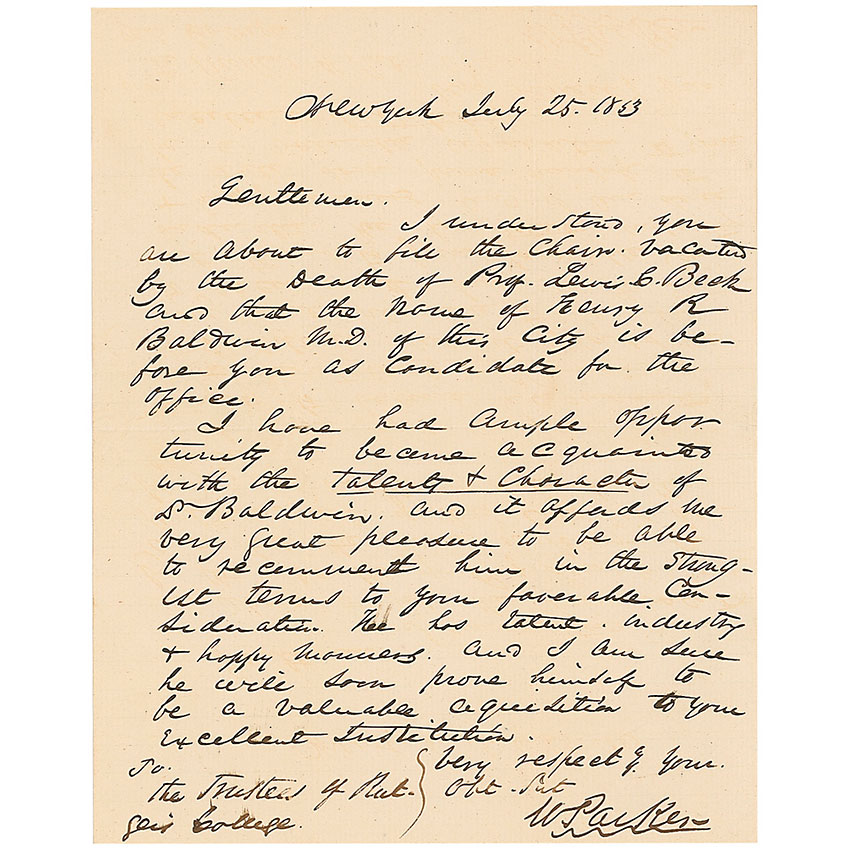 New York July 25. 1853
Gentlemen.
I understand, you
are about to fill the Chair. vacated
by the Death of Prof. Lewis C. Beck
and that the name of Henry R
Baldwin M.D. of this City is be-
fore you as Candidate for the
office.
I have had ample oppor
tunity to became acquainted
with the talents & Character of
Dr. Baldwin. and it affords me
very great pleasure to be able
to recommend him in the Strong-
est terms to your favorable Con-
sideration. He has talent. industry
& happy manners. and I am sure
he will soon prove himself to
be a valuable acquisition to your
Excellent Institution.
To.
the Trustees of Rut-
gers College.
Very respecty. Your.
Obt. Svt
W Parker